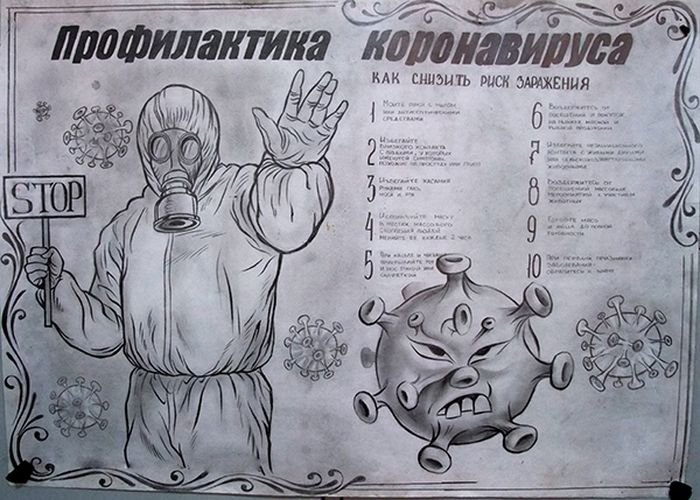 Профилактика коронавируса
КАК СНИЗИТЬ РИСК ЗАРАЖЕНИЯ
STOP
1 Мойте руки с мылом
или антисептическими
средствами
2 Избегайте
близкого контакта
с людьми, у которых
имеются симптомы,
похожие на простуду или грипп
3 Избегайте касания
руками глаз,
носа и рта
4 Используйте маску
в местах массового
скопления людей
меняйте её каждые 2 часа
5 При кашле и чихании
прикрывайте рот
и нос рукой или
салфеткой
6 Воздержитесь от
посещения и покупок
на рынках мясной и
рыбной продукции
7 Избегайте незащищённого
контакта с живыми дикими
или сельскохозяйственными
животными
8 Воздержитесь от
посещения массовых
мероприятий с участием
животных
9 Готовьте мясо
и яйца до полной
готовности
10 При первых признаках
заболевания
обратитесь к врачу